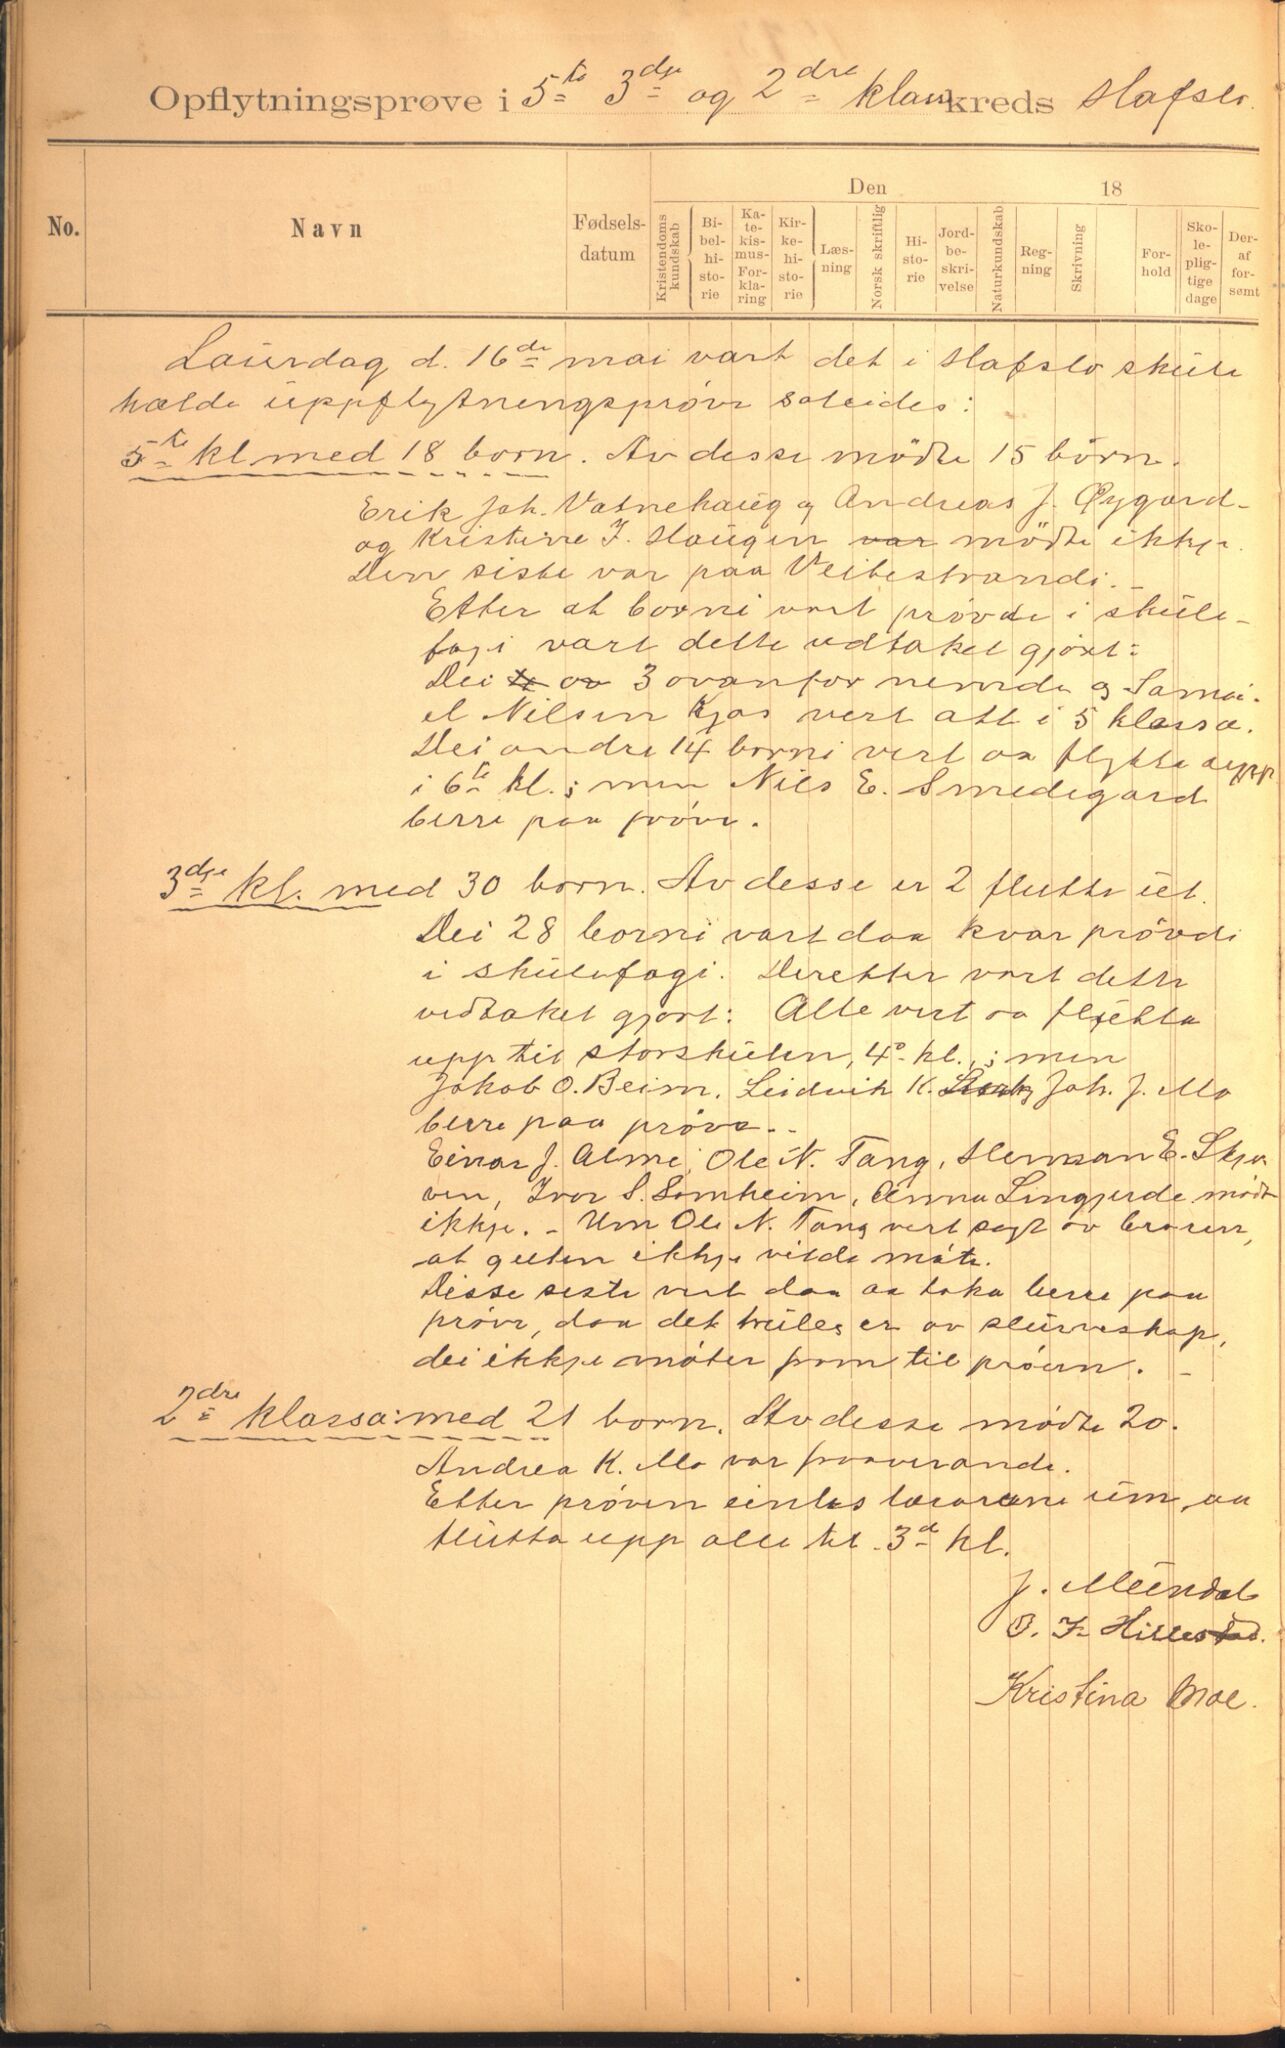 Opflytningsprøve i 5te 3dje og 2dre klasse kreds Hafslo.
No.
Navn
Fødsels-
datum
Den 18
Kristendoms
kundskab
Bi-
bel-
hi-
sto-
rie
Ka-
te-
kis-
mus-
For-
kla-
ring
Kir-
ke-
hi-
sto-
rie
Læs-
ning
Norsk skriftlig
Hi-
sto-
rie
Jord-
be-
skri-
velse
Naturkundskab
Reg-
ning
Skrivning
For-
hold
Sko-
le-
plig-
tige
dage
Der-
af
for-
sømt
Laurdag d. 16de mai vart det i Hafslo skule
halde uppflytningsprøve soleides:
5te kl med 18 born. Av desse mødte 15 børn.
Erik Joh. Vatnehaug og Andreas J. Øygard
og Kristine I. Haugen var mødte ikkje.
Den siste var paa Veitestrandi. -
Etter at borni vart prøvde i skule-
fagi vart dette vedtaket gjort:
Dei 3 ovanfor nemnde og Samu-
el Nilsen Kjos vert att i 5 klassa.
Dei andre 14 borni vert aa flytta upp
i 6te kl.; men Nils E. Smedegard
berre paa prøve.
3dje kl. med 30 born. Av desse er 2 flutte ut.
Dei 28 borni vart daa kvar prøvde
i skulefagi. Deretter vart dette
vedtaket gjort: Alle vert aa flytta
upp til storskulen, 4de kl.; men
Jakob O. Beim, Leidvik K. Joh. J. Mo
berre paa prøve. -
Einar J. Alme, Ole N. Tang, Herman E. Skja
ven, Ivar S. Somheim, Anna Lingjerde mødte
ikkje. - Um Ole N. Tang vert sagt av broren,
at guten ikkje vilde møte.
Disse siste vert daa aa taka berre paa
prøve, daa det truleg er av slurveskap,
dei ikkje møter fram til prøven. -
2dre klassa: med 21 born. Av desse mødte 20.
Andrea K. Mo var fraaverande.
Etter prøven eintes lærarane um, aa
flutta upp alle til 3d kl.
J. Mundal
O. I. Hillestad.
Kristina Moe.